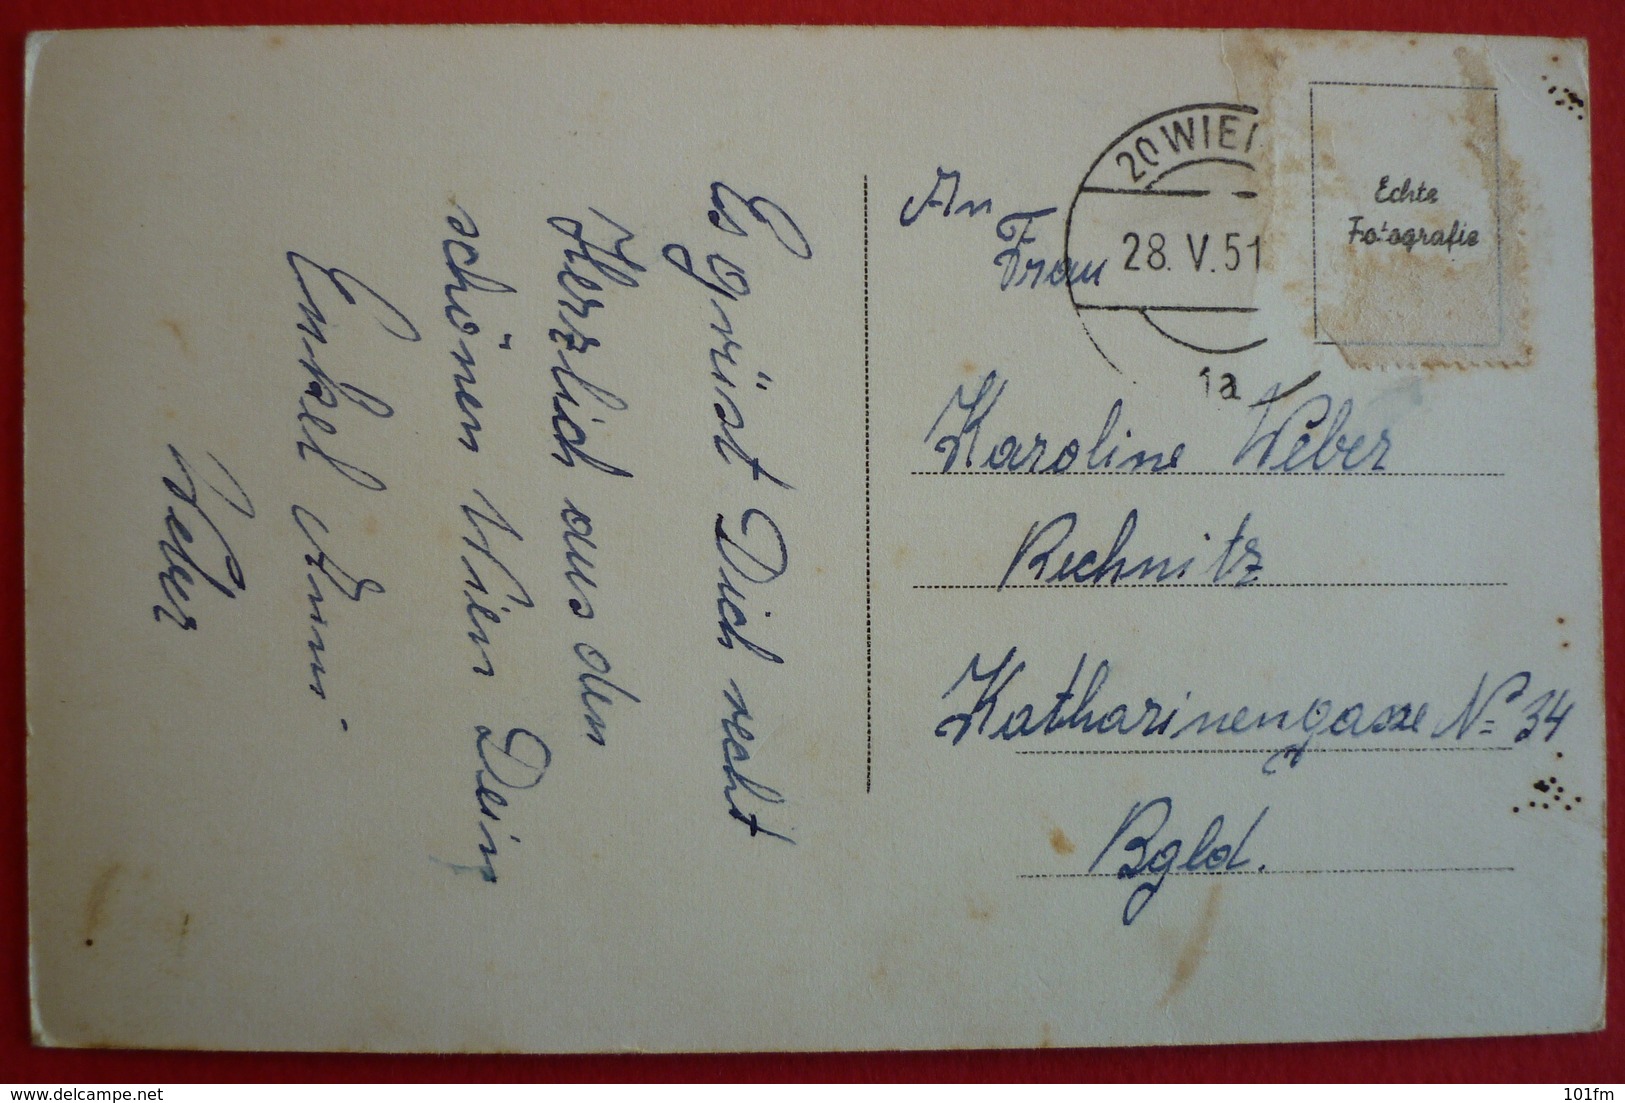 Es grüst Dich recht
Herzlich aus dem
schönen Wien Dein
Enkel Anni
Weber
An
Frau
Karoline Weber
Rechnitz
Katharinengasse No 34
Bgld.
20 WIEN
28.V.51
1a
Echte
Fotografie
101fm